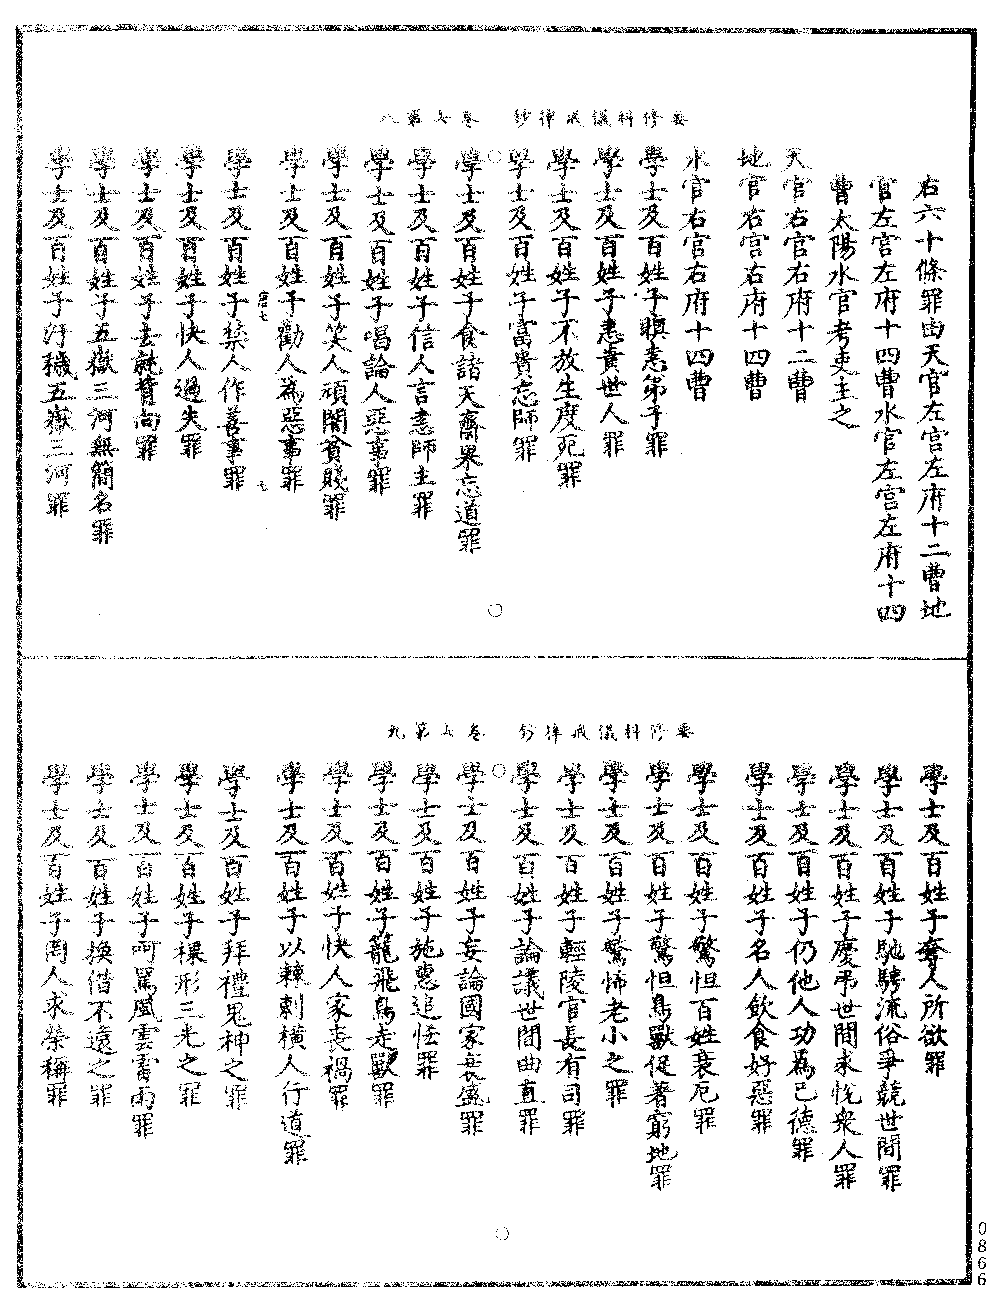 要修科儀戒律鈔　卷七第八
右六十條罪由天官左宮左府十二曹地
官左宮左府十四曹水官左宮左府十四
曹太陽水官考吏主之
天官右宮右府十二曹
地官右宮右府十四曹
水官右宮右府十四曹
學士及百姓子瞋恚弟子罪
學士及百姓子恚責世人罪
學士及百姓子不放生度死罪
學士及百姓子富貴忘師罪
學士及百姓子食諸天齋果忘道罪
學士及百姓子信人言恚師主罪
學士及百姓子唱論人惡事罪
學士及百姓子笑人頑闇貧賤罪
學士及百姓子勸人為惡事罪
唐七　七
學士及百姓子禁人作善事罪
學士及百姓子快人過失罪
學士及百姓子去就背向罪
學士及百姓子五嶽三河無簡名罪
學士及百姓子汙穢五嶽三河罪
要修科儀戒律鈔　卷七第九
學士及百姓子奪人所欲罪
學士及百姓子馳騁流俗爭競世間罪
學士及百姓子慶弔世間求悅衆人罪
學士及百姓子仍他人功為己德罪
學士及百姓子名人飲食好惡罪
學士及百姓子驚怛百姓衰厄罪
學士及百姓子驚怛鳥獸促著窮地罪
學士及百姓子驚怖老小之罪
學士及百姓子輕陵官長有司罪
學士及百姓子論議世間曲直罪
學士及百姓子妄論國家衰盛罪
學士及百姓子施惠追恡罪
學士及百姓子籠飛鳥走獸罪
學士及百姓子快人家喪禍罪
學士及百姓子以棘刺橫人行道罪
學士及百姓子拜禮鬼神之罪
學士及百姓子裸形三光之罪
學士及百姓子呵罵風雲雷雨罪
學士及百姓子換借不還之罪
學士及百姓子罔人求榮稱罪
0866